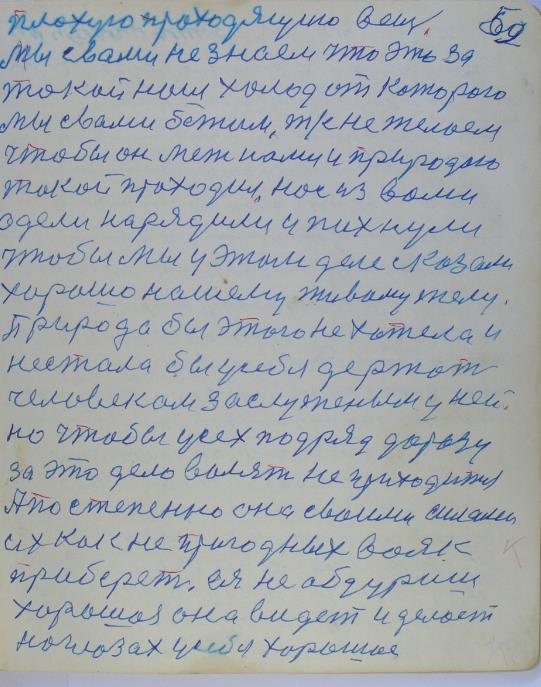 52
плохую проходящую вещ.
Мы свами незнаем что это за
токой ным холод от которого
мы свами бежим, тк не желоем
чтобы он меж нами и природою
такой проходил, нос из воми
одели нарядили и пихнули
чтобы мы у этом деле сказали
хорошо нашему живому телу.
Природа бы этого не хотела и
нестала бы усебя держоть
человеком заслуженым у ней.
но чтобы усех подряд заразу
за это дело волят не приходится
А постепенно она своими силами
их как не пригодных вояк
приберет. ея не обдуриш
хорошоя она видет и делоет
но глозах усебя хорошое